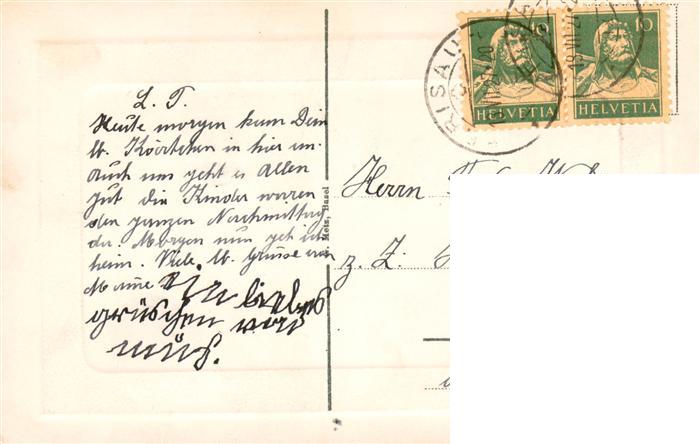 L. T.
Heute morgen kam Dein
lb. Kärtchen in hier an.
Auch uns geht es allen
gut die Kinder waren
den ganzen Nachmittag
da. Morgen nun geh ich
heim. Viele lb. Grüsse von
Mama Ein liebes
grüschen von
müs.
Metz, Basel
HERISAU
18.VII.24
10
HELVETIA
10
HELVETIA
Herrn
z. Z.